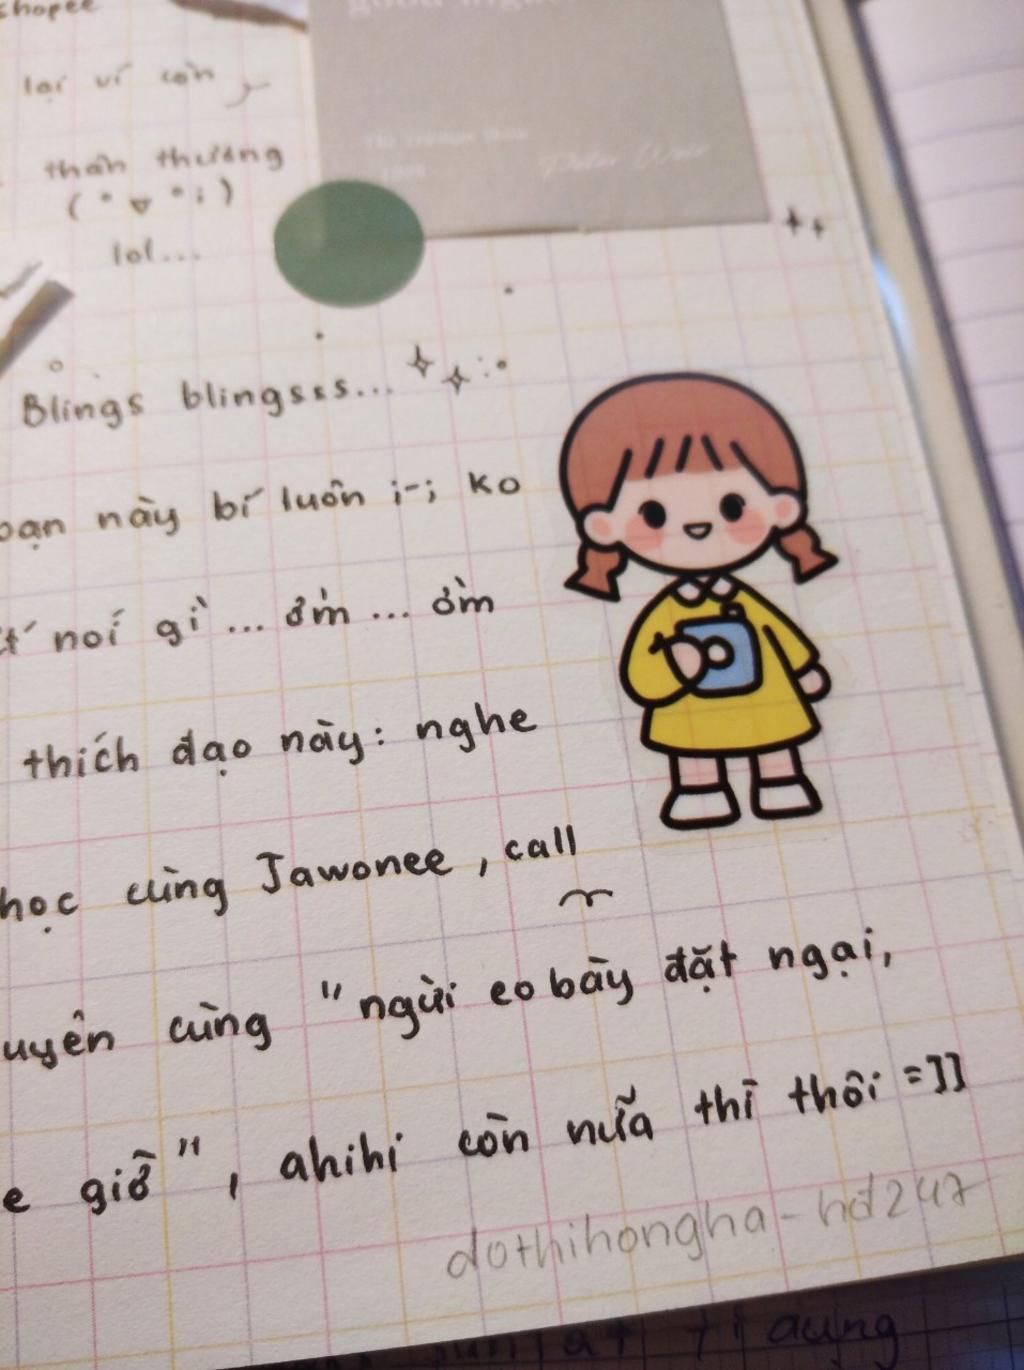 shopee
lại ví còn
thân thương
(°▽°;)
lol...
Blings blingsss...
bạn này bí luôn ;-; ko
nói gì ... ờm ... ờm
thích đạo này: nghe
học cùng Jawonee, call
cùng "ngùi eo bày đặt ngại,
e giờ", ahihi còn nữa thì thôi =]]
dothihongha-hd247